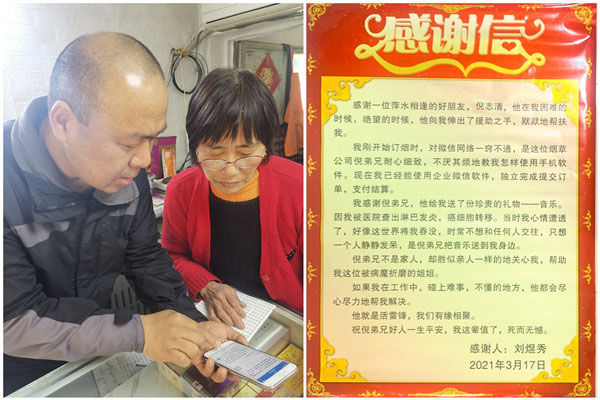 感谢信
感谢一位萍水相逢的好朋友，倪志清，他在我困难的
时候，绝望的时候，他向我伸出了援助之手，默默地帮扶
我。
我刚开始订烟时，对微信网络一窍不通，是这位烟草
公司倪弟兄耐心细致，不厌其烦地教我怎样使用手机软
件。现在我已经能使用企业微信软件，独立完成提交订
单，支付结算。
我感谢倪弟兄，他给我送了份珍贵的礼物——音乐。
因我被医院查出淋巴发炎，癌细胞转移。当时我心情遭透
了，好像这世界将我吞没，时常不想和任何人交往，只想
一个人静静发呆，是倪弟兄把音乐送到我身边。
倪弟兄不是家人，却胜似亲人一样的地关心我，帮助
我这位被病魔折磨的姐姐。
如果我在工作中，碰上难事，不懂的地方，他都会尽
心尽力地帮我解决。
他就是活雷锋，我们有缘相聚。
祝倪弟兄好人一生平安，我这辈值了，死而无憾。
感谢人：刘煜秀
2021年3月17日